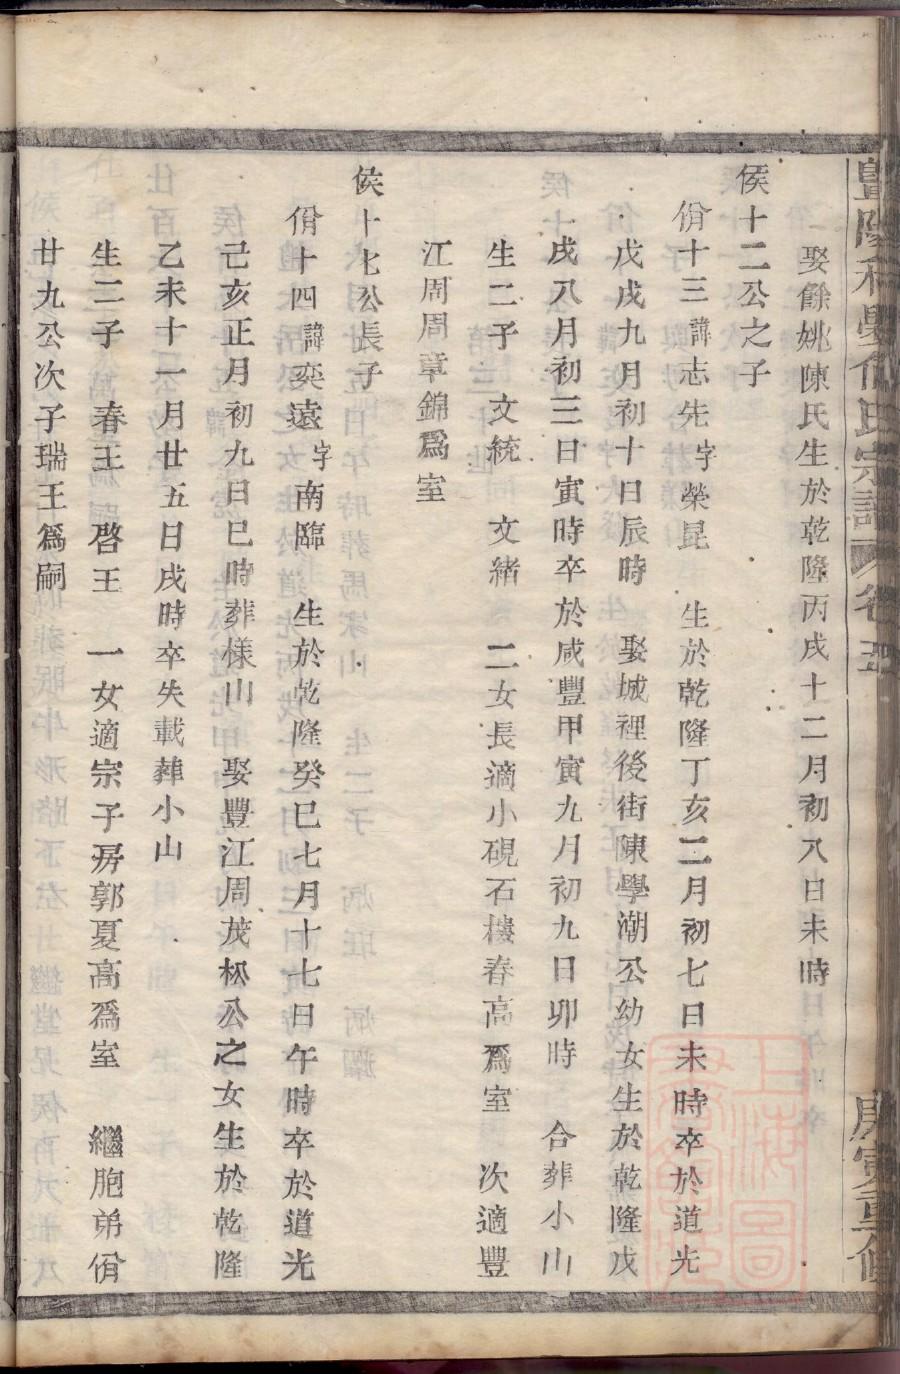 娶餘姚陳氏生於乾隆丙戌十二月初八日未時
侯十二公之子
佾十三諱志先字榮昆　生於乾隆丁亥二月初七日未時卒於道光
戊戌九月初十日辰時　娶城裡後街陳學潮公幼女生於乾隆戊
戌八月初三日寅時卒於咸豐甲寅九月初九日卯時　合葬小山
生二子　文統　文緒　二女長適小硯石樓春高爲室　次適豐
江周周章錦爲室
侯十七公長子
佾十四諱奕遠字南臨　生於乾隆癸巳七月十七日午時卒於道光
己亥正月初九日巳時葬様山　娶豐江周茂松公之女生於乾隆
乙未十一月廿五日戌時卒失載葬小山
生二子　春王　啓王　一女適宗子房郭夏高爲室　繼胞弟佾
廿九公次子瑞王爲嗣
氏宗譜 卷五
庚寅重修
上海圖